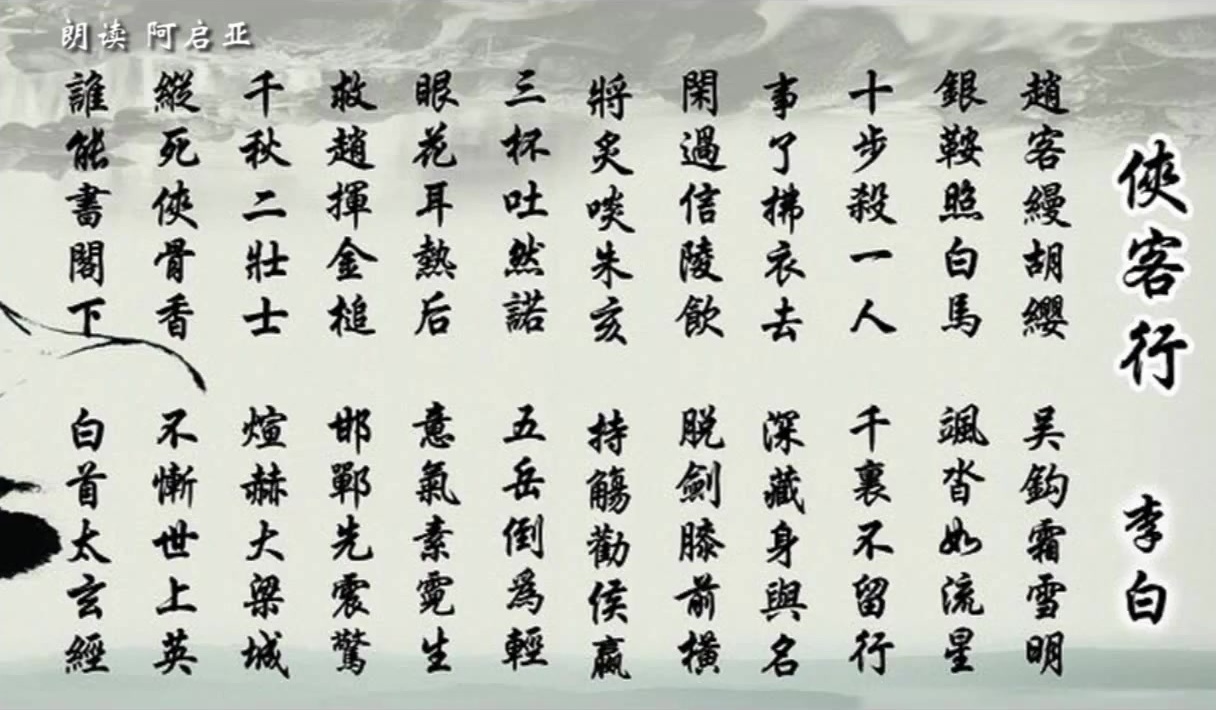 朗读 阿启亚
俠客行 李白
趙客縵胡纓 吴鈎霜雪明
銀鞍照白馬 颯沓如流星
十步殺一人 千裏不留行
事了拂衣去 深藏身與名
閑過信陵飲 脱劍膝前橫
將炙啖朱亥 持觴勸侯嬴
三杯吐然諾 五岳倒為輕
眼花耳熱后 意氣素霓生
救趙揮金槌 邯鄲先震驚
千秋二壯士 煊赫大梁城
縱死俠骨香 不慚世上英
誰能書閣下 白首太玄經